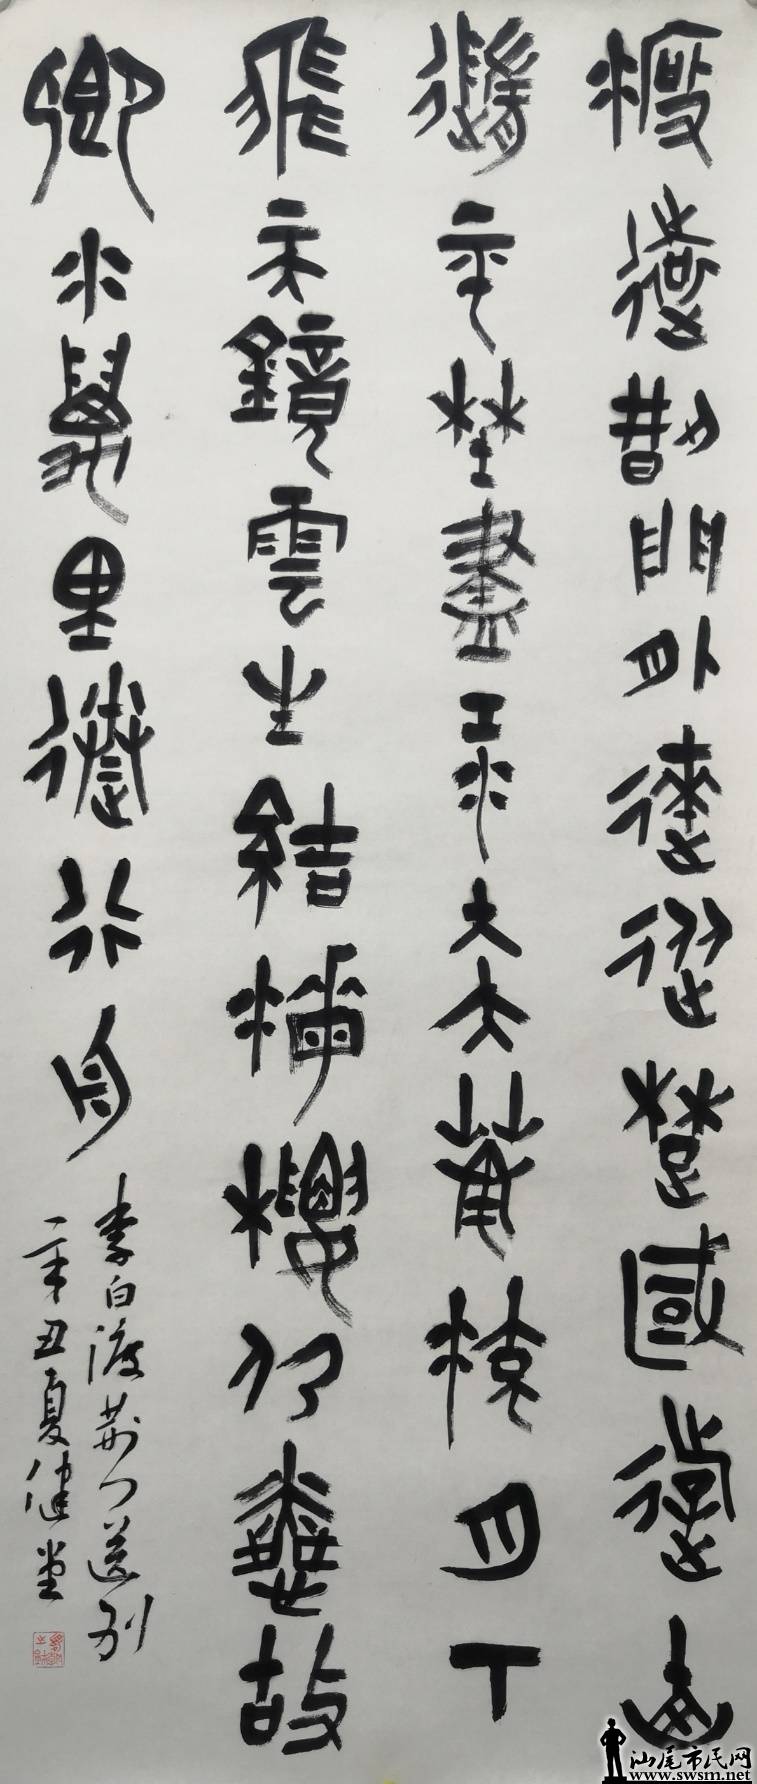 渡遠荊門外來從楚國遊山
隨平野盡江入大荒流月下
飛天鏡雲生結海樓仍憐故
鄉水萬里送行舟
李白渡荆门送别
辛丑夏健堂
汕尾市民网
www.swsm.net